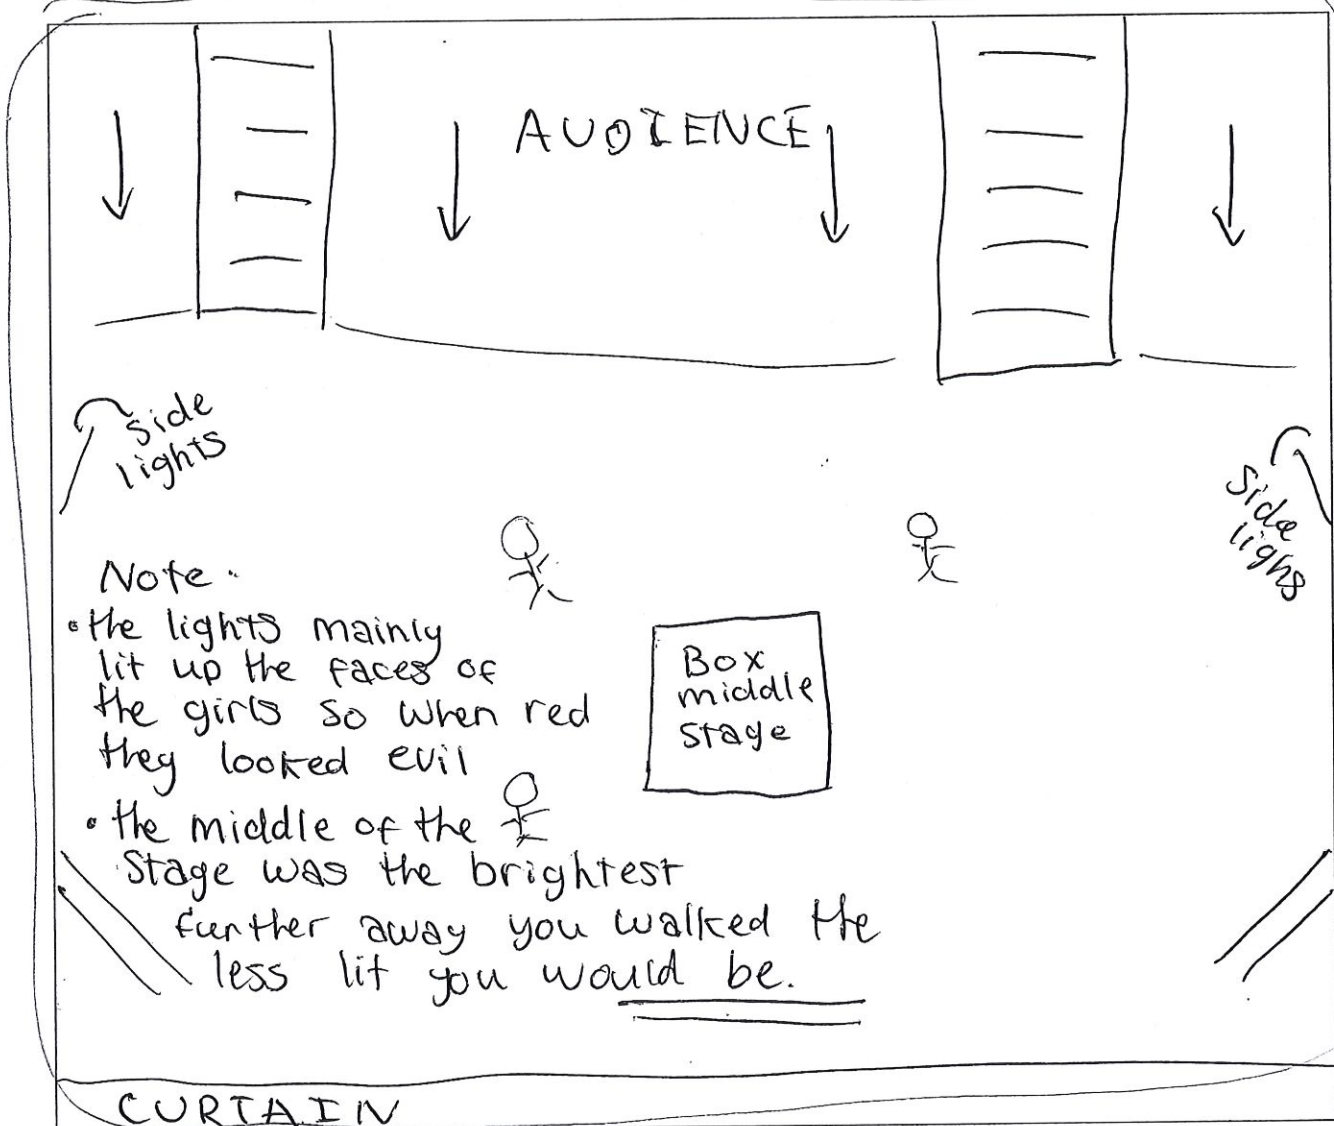 AUDIENCE
side
lights
side
lighs
Note.
• the lights mainly
lit up the faces of
the girls so when red
they looked evil
• the middle of the
stage was the brightest
further away you walked the
less lit you would be.
Box
middle
stage
CURTAIN